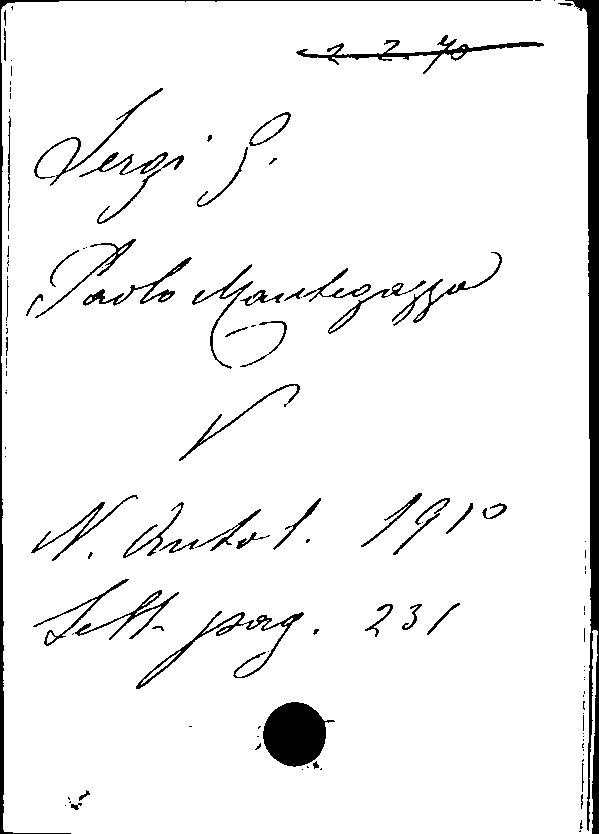 2. 2. 70
Sergi G.
Paolo Mantegazza
V
N. Antol. 1910
Sett. pag. 231